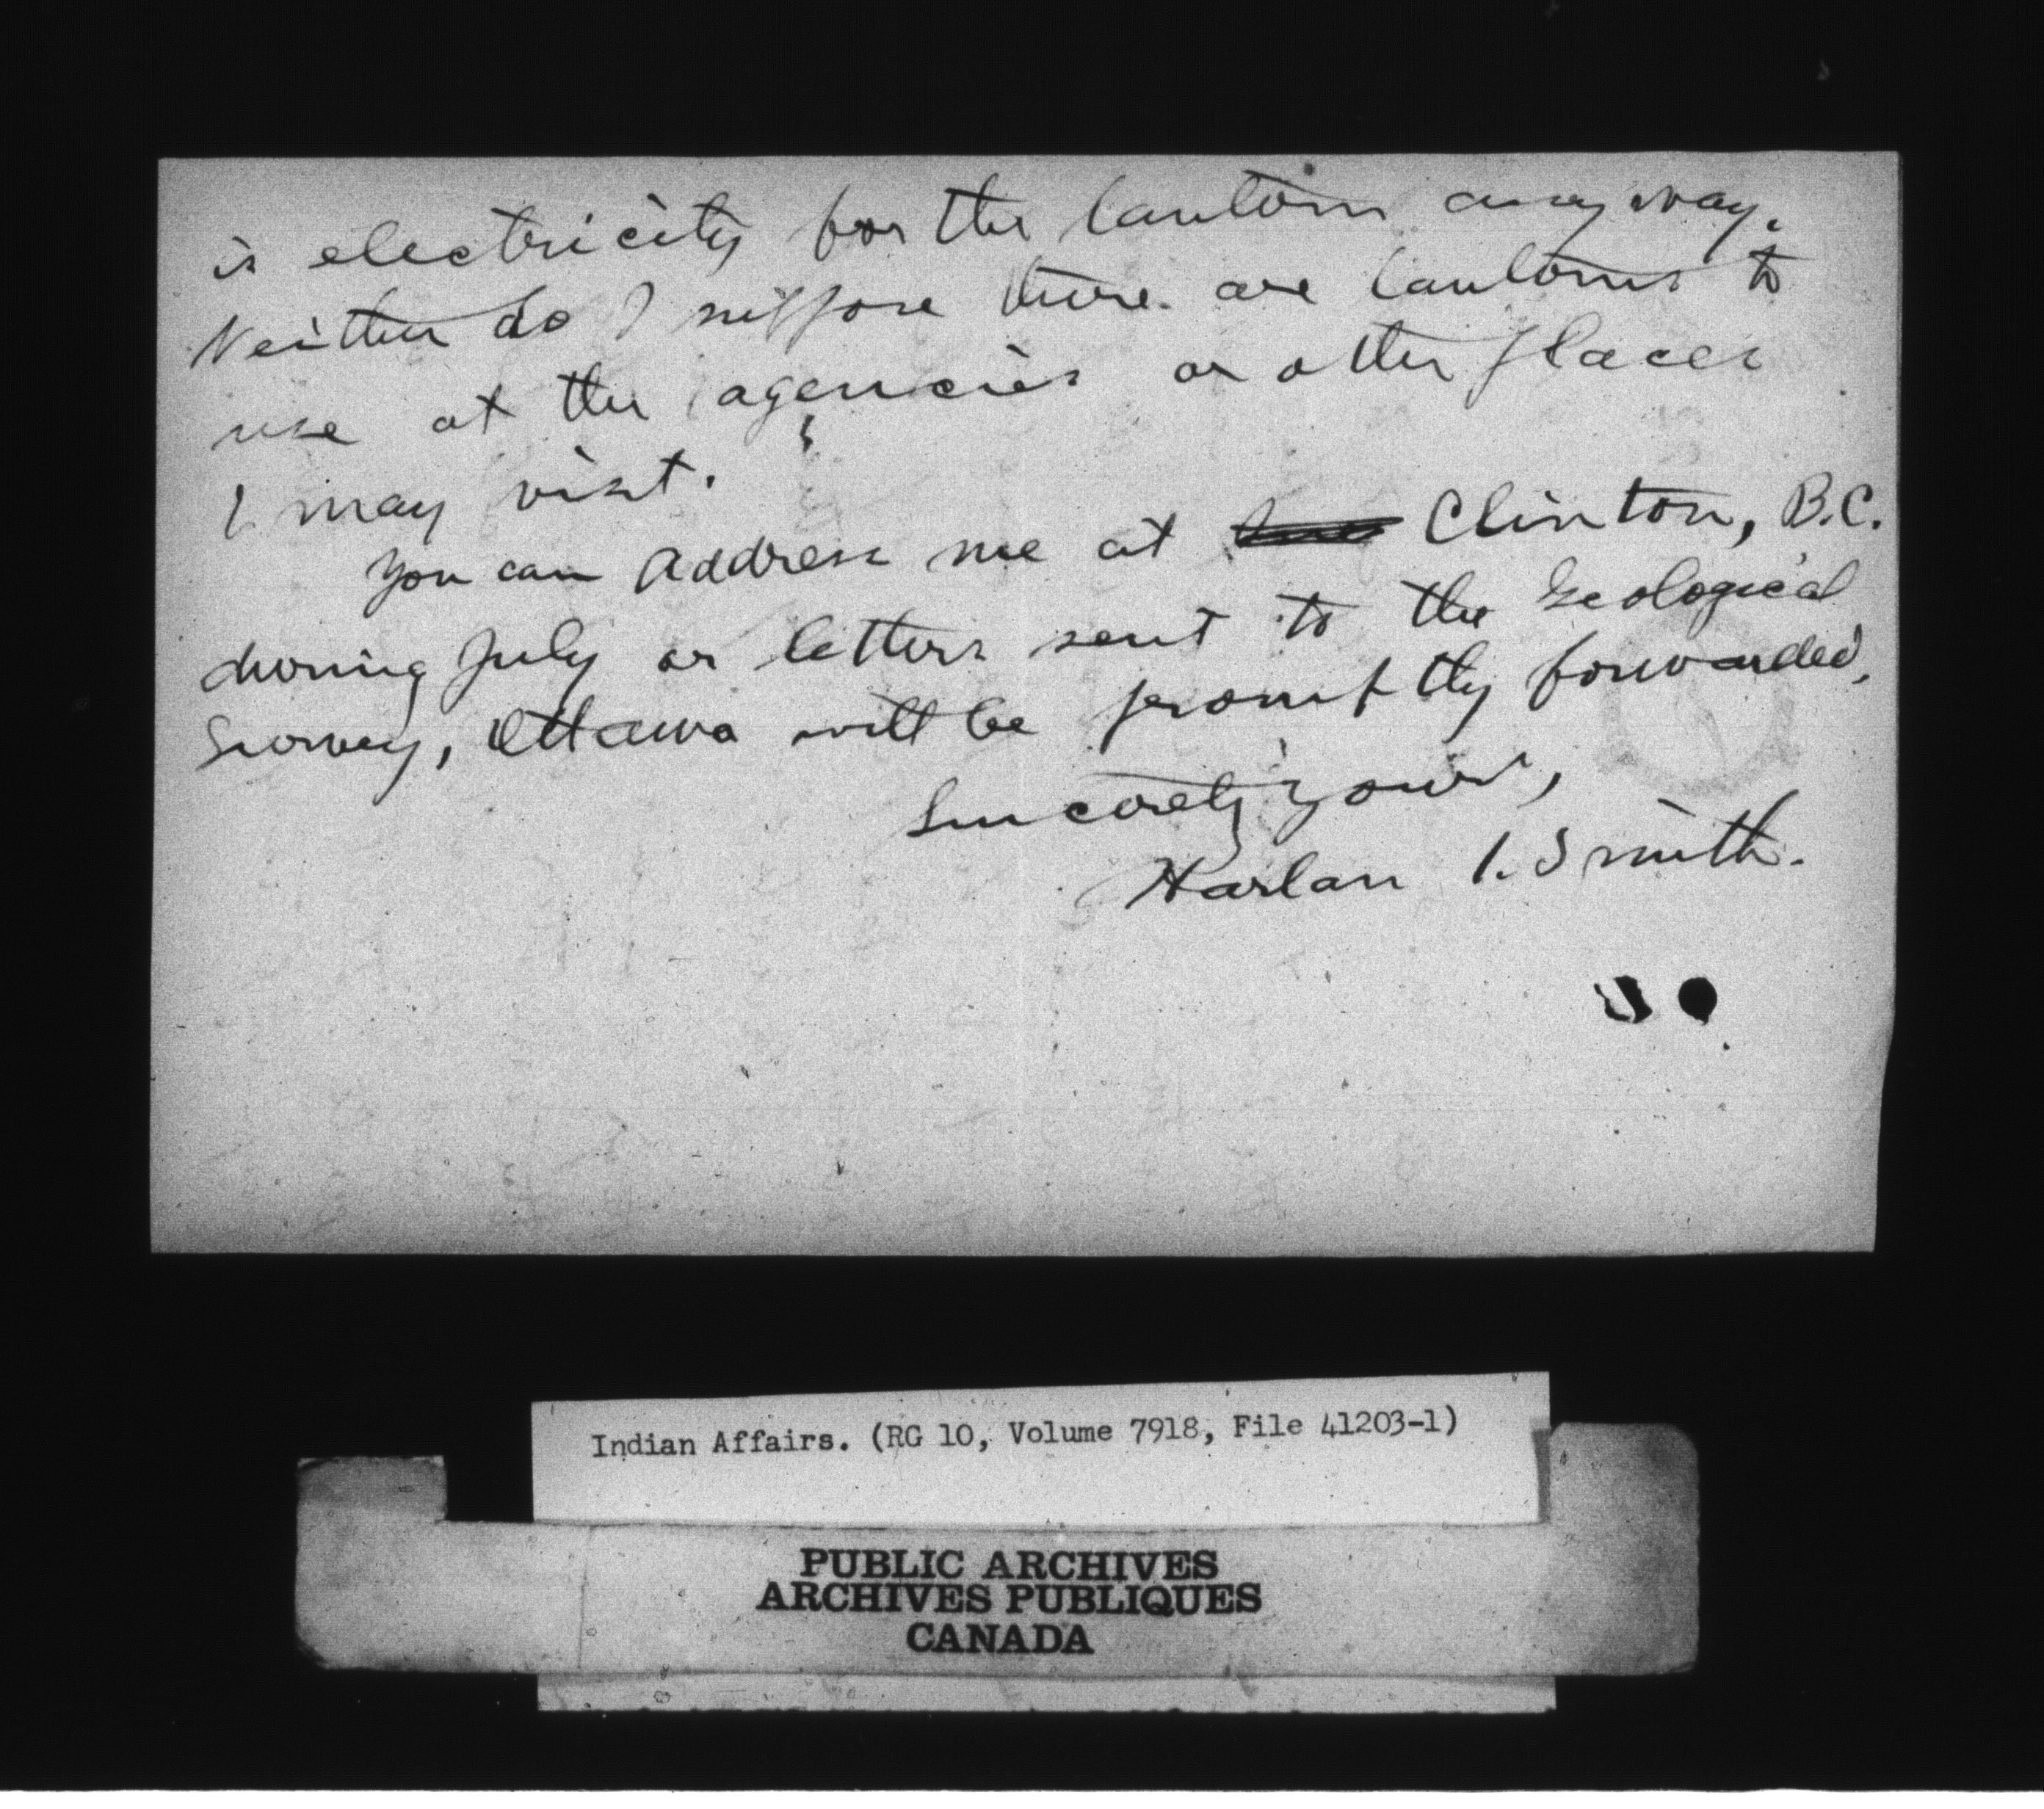 is electricity for the lantern any way.
Neither do I suppose there are lanterns to
use at the agencies or other places
I may visit.
You can address me at Clinton, B.C.
during July or letters sent to the Geological
Survey, Ottawa will be promptly forwarded.
Sincerely yours,
Harlan I. Smith.
Indian Affairs. (RG 10, Volume 7918, File 41203-1)
PUBLIC ARCHIVES
ARCHIVES PUBLIQUES
CANADA